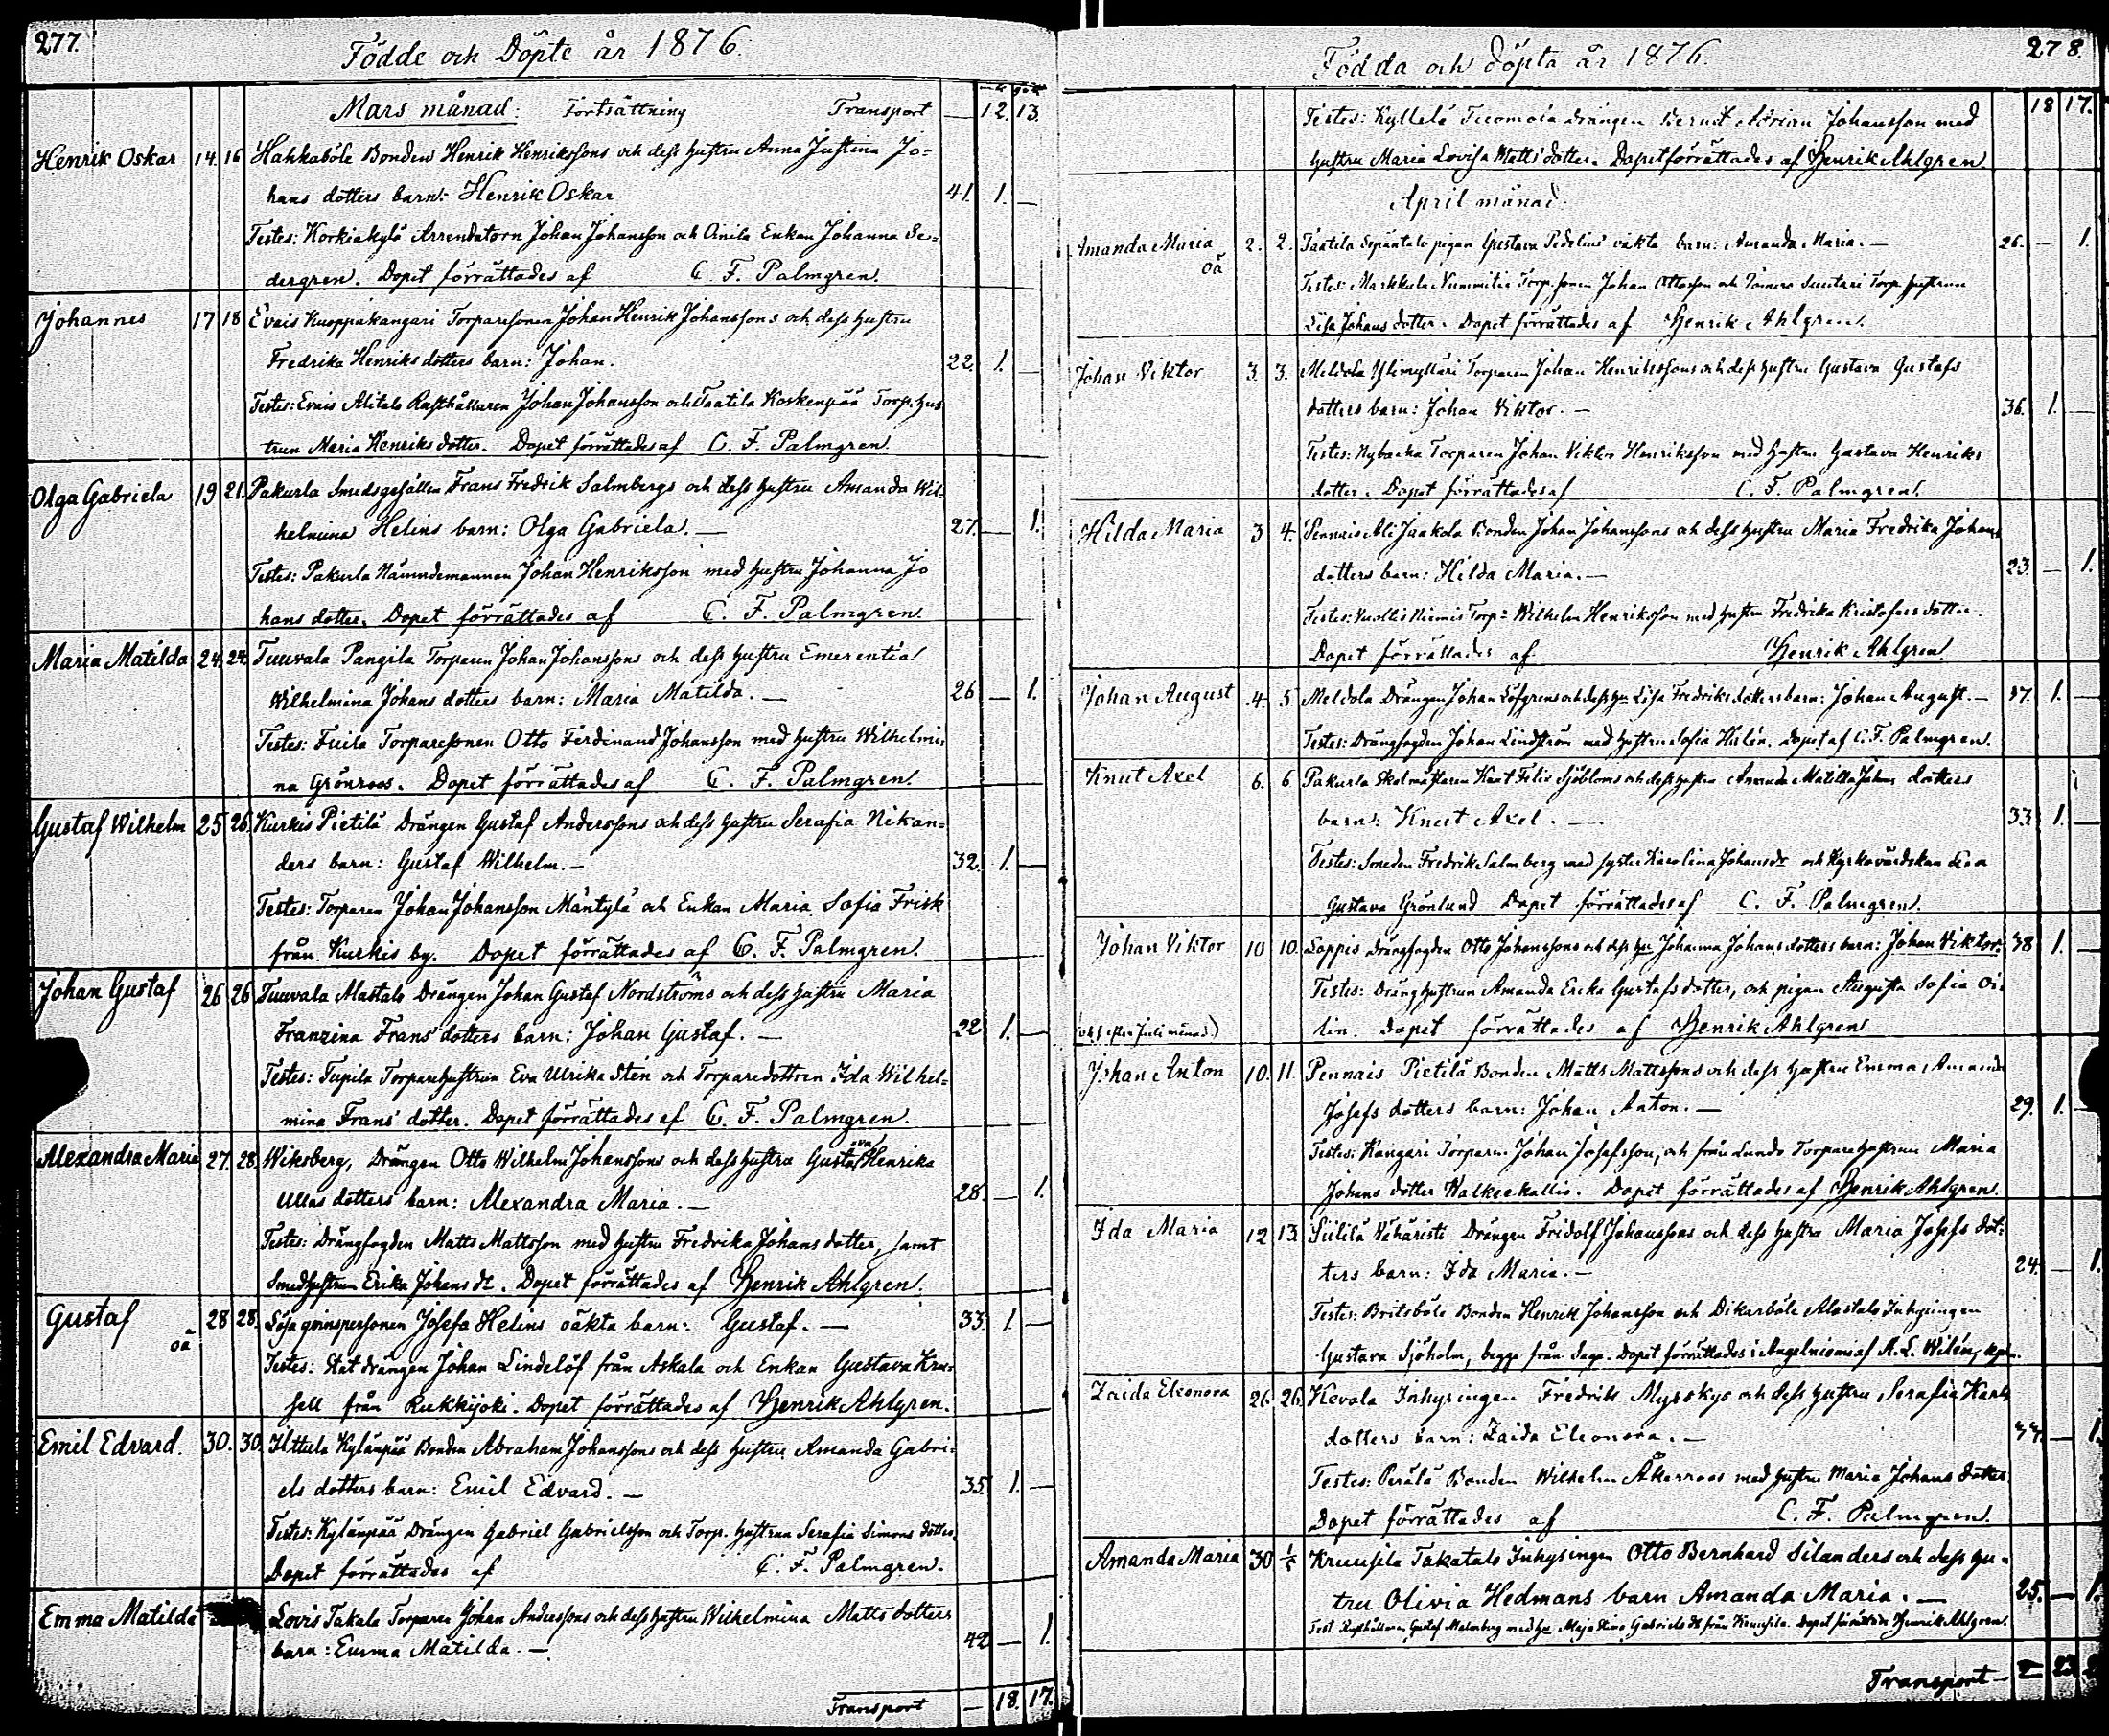 277.
Födde och Döpte år 1876.
Mars månad: Fortsättning Transport — 12. 13.
Henrik Oskar 14. 16 Hahkaböle Bonden Henrik Henrikssons och dess hustru Anna Justina Jo=
hans dotters barn: Henrik Oskar 41. 1. —
Testes: Korkiakylä Arrendatorn Johan Johansson och Enkan Johanna Se=
dergren. Dopet förrättades af C. F. Palmgren.
Johannes 17 18 Evais Kuoppakangari Torparesonen Johan Henrik Johanssons och dess hustru
Fredrika Henriks dotters barn: Johan. 22. 1. —
Testes: Evais Alitalo Rusthållaren Johan Johansson och Taatila Koskenpää Torp. hus
trun Maria Henriks dotter. Dopet förrättades af C. F. Palmgren.
Olga Gabriela 19 21. Pakurla Smedsgesällen Frans Fredrik Salmbergs och dess hustru Amanda Wil=
helmina Helins barn: Olga Gabriela. — 27. — 1.
Testes: Pakurla Nämndemannen Johan Henriksson med hustru Johanna Jo
hans dotter. Dopet förrättades af C. F. Palmgren.
Maria Matilda 24. 24. Tuuvala Pangila Torparen Johan Johanssons och dess hustru Emerentia
Wilhelmina Johans dotters barn: Maria Matilda. — 26 — 1.
Testes: Torparesonen Otto Ferdinand Johansson med hustru Wilhelmi,
na Grönroos. Dopet förrättades af C. F. Palmgren.
Gustaf Wilhelm 25 26. Kurkis Pietilä Drängen Gustaf Anderssons och dess hustru Serafia Nikan=
ders barn: Gustaf Wilhelm. — 32. 1. —
Testes: Torparen Johan Johansson Mäntylä och Enkan Maria Sofia Frisk
från Kurkis by. Dopet förrättades af C. F. Palmgren.
Johan Gustaf 26 26 Tuuvala Alastalo Drängen Johan Gustaf Nordströms och dess hustru Maria
Franzina Frans dotters barn: Johan Gustaf. — 22 1. —
Testes: Tupila Torparehustrun Eva Ulrika Sten och Torparedottren Ida Wilhel=
mina Frans' dotter. Dopet förrättades af C. F. Palmgren.
Alexandra Maria 27. 28. Wiksberg, Drängen Otto Wilhelm Johanssons och dess hustru Gustava Henrika
Ullas dotters barn: Alexandra Maria. — 28. — 1.
Testes: Drängfogden Matts Mattsson med hustru Fredrika Johans dotter, samt
Smedhustrun Erika Johans dr. Dopet förrättades af Henrik Ahlgren.
Gustaf 28 28. Lösa qvinspersonen Josefa Helins oäkta barn: Gustaf. — 33. 1. —
oä
Testes: Statdrängen Johan Lindelöf från Askala och Enkan Gustava Kru,
sell från Rukkijoki. Dopet förrättades af Henrik Ahlgren.
Emil Edvard. 30. 30. Ilttula Kylänpää Bonden Abraham Johanssons och dess hustru Amanda Gabri,
els dotters barn: Emil Edvard. — 35. 1. —
Testes: Kylänpää Drängen Gabriel Gabrielsson och Torp. hustrun Serafia Simons dotter.
Dopet förrättades af C. F. Palmgren.
Emma Matilda Lovis Takala Torparen Johan Anderssons och dess hustru Wilhelmina Matts dotters
barn: Emma Matilda. — 42 — 1.
Transport — 18. 17.
278.
Födda och Döpta år 1876.
18 17.
Testes: Kyllelä Tuomola drängen Bernt Adrian Johansson med
hustru Maria Lovisa Matts' dotter. Dopet förrättades af Henrik Ahlgren
April månad.
Amanda Maria 2. 2. Taatila Sepäntalo pigan Gustava oäkta barn: Amanda Maria. — 26. — 1.
oä
Testes: Markkula Nummitie Torp. sonen Johan Ottosson och Suutari Torp. hustrun
Lisa Johans dotter. Dopet förrättades af Henrik Ahlgren.
Johan Viktor 3. 3. Meldola Ylimylläri Torparen Johan Henrikssons och dess hustru Gustava Gustafs
dotters barn: Johan Viktor. — 36. 1. —
Testes: Nybacka Torparen Johan Viktor Henriksson med hustru Gustava Henriks
dotter. Dopet förrättades af C. F. Palmgren.
Hilda Maria 3 4. Pennais Ali Jaakola Bonden Johan Johanssons och dess hustru Maria Fredrika Johans
dotters barn: Hilda Maria. — 23. — 1.
Testes: Niemis Torp: Wilhelm Henriksson med hustru Fredrika Kristofers dotter.
Dopet förrättades af Henrik Ahlgren.
Johan August 4. 5. Meldola Drängen Johan Löfgrens och dess hu Lisa Fredriks dotters barn: Johan August. — 37. 1. —
Testes: Drängfogden Johan Lindström med hustru Sofia Hislén. Dopet af C. F. Palmgren.
Knut Axel 6. 6 Pakurla Skolmästaren Knut Felix Sjöbloms och dess hustru Amanda Matilda Johans dotters
barn: Knut Axel. — 33. 1. —
Testes: Smeden Fredrik Salmberg med syster Karolina Johans dr och Kyrkovärdskan Eva
Gustava Grönlund Dopet förrättades af C. F. Palmgren.
Johan Viktor 10 10. Loppis Drängfogden Otto Johanssons och dess hu Johanna Johans dotters barn: Johan Viktor. 38 1. —
Testes: Dränghustrun Amanda Erika Gustafs dotter, och pigan Augusta Sofia Oi,
lin. Dopet förrättades af Henrik Ahlgren.
efter Juli månad.)
Johan Anton 10. 11. Pennais Pietilä Bonden Matts Mattssons och dess hustru Emma Amanda
Josefs dotters barn: Johan Anton. — 29. 1. —
Testes: Kangari Torparen Johan Josefsson, och från Lundo Torparehustrun Maria
Johans dotter Walkeekallio. Dopet förrättades af Henrik Ahlgren.
Ida Maria 12 13. Siililä Wähäristi Drängen Fridolf Johanssons och dess hustru Maria Josefs dot=
ters barn: Ida Maria. — 24. — 1.
Testes: Britsböle Bonden Henrik Johansson och Dikarböle Alastalo Inhysingen
Gustava Sjöholm, begge från Sagu. Dopet förrättades i Angelniemi af A. L. Wilén,
Zaida Eleonora 26. 26. Kevola Inhysingen Fredrik Myrskys och dess hustru Serafia Karls
dotters barn: Zaida Eleonora. — 37. — 1.
Testes: Perälä Bonden Wilhelm Åkerroos med hustru Maria Johans dotter.
Dopet förrättades af C. F. Palmgren.
Amanda Maria 30 1/5 Kruusila Takatalo Inhysingen Otto Bernhard Silanders och dess hu=
tru Olivia Hedmans barn Amanda Maria. — 25. — 1.
Test. Rusthållaren Gustaf Malmberg med hu Maja Stina Gabriels dr från Kruusila. Dopet förrättades Henrik Ahlgren.
Transport —